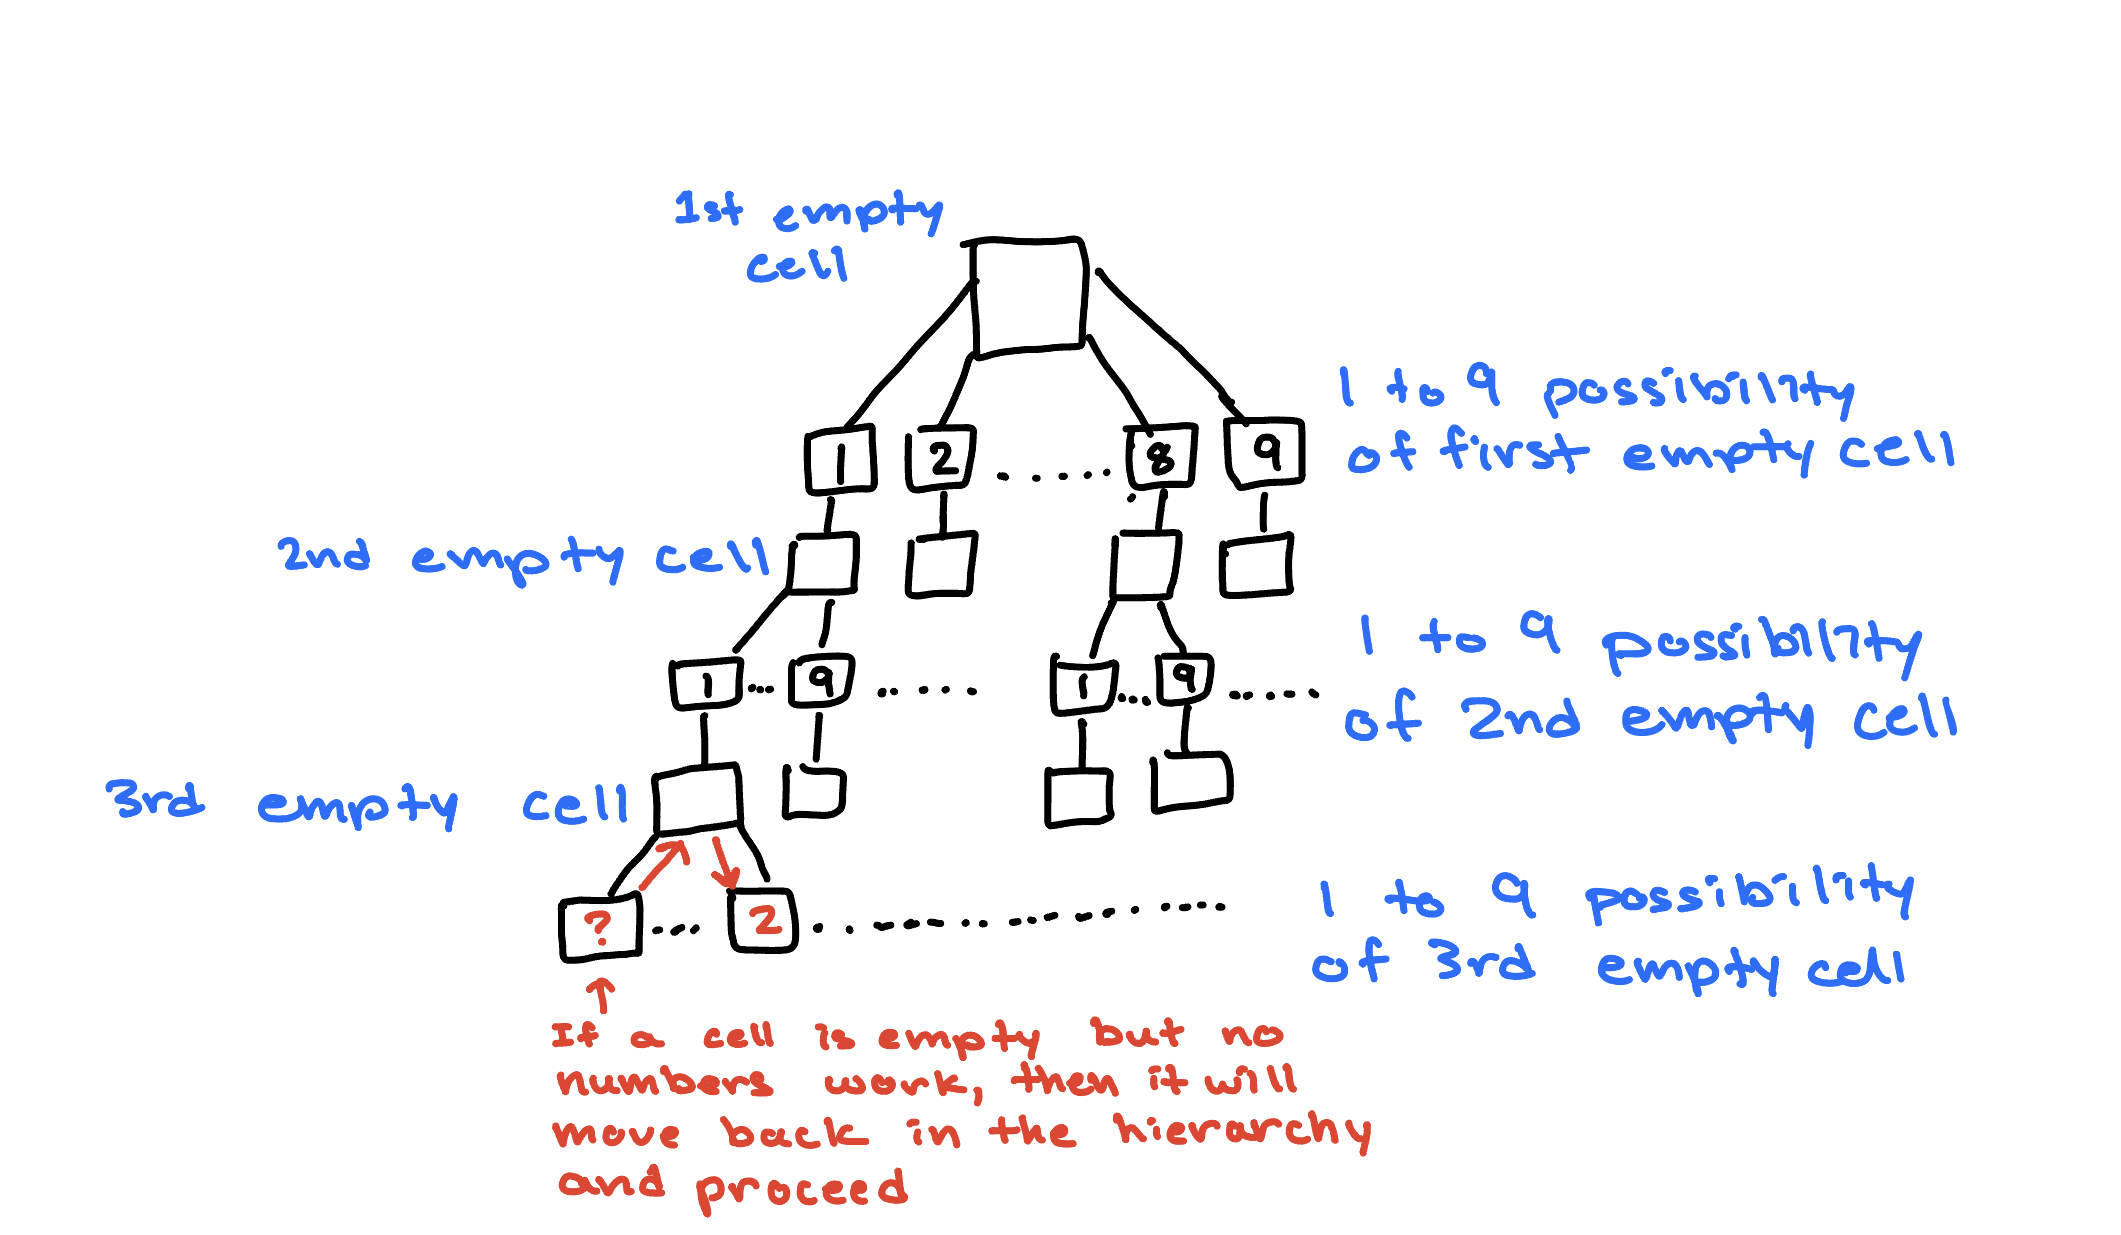 1st empty
cell
1 2 8 9
1 to 9 possibility
of first empty cell
2nd empty cell
1 9 1 9
1 to 9 possibility
of 2nd empty cell
3rd empty cell
? 2
1 to 9 possibility
of 3rd empty cell
If a cell is empty but no
numbers work, then it will
move back in the hierarchy
and proceed